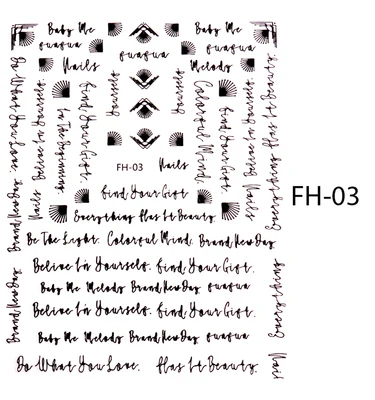 Baby Me
quaqua
Nails
Baby Me
quaqua
Melody
quaqua
Do What You Love.
Believe In Yourself.
In The Beginning
Find Your Gift.
Yourself.
Yourself.
Colorful Mind.
Find Your Gift.
Believe In Yourself.
Everything Has It Beauty.
Nails
Nails
FH-03
Nails
Find Your Gift
Everything Has It Beauty.
Brand New Day.
Be The Light. Colorful Mind. Brand New Day
FH-03
Believe In Yourself. Find Your Gift.
Baby Me Melody Brand New Day quaqua
Believe In Yourself. Find Your Gift.
Baby Me Melody Brand New Day quaqua
Do What You Love. Has It Beauty.
Brand New Day.
Everything
Nail